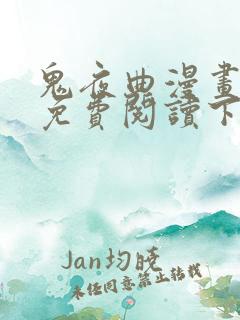 鬼夜曲漫畫
免費閱讀下
Jan均曉
未經同意禁止轉載